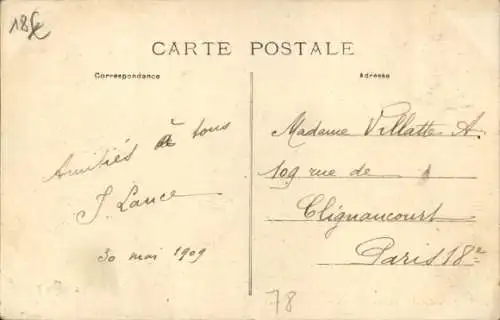 CARTE POSTALE
Correspondance
Amitiés à tous
J. Lance
30 mai 1909
Adresse
Madame Villatte A.
109 rue de
Clignancourt
Paris 18e
78